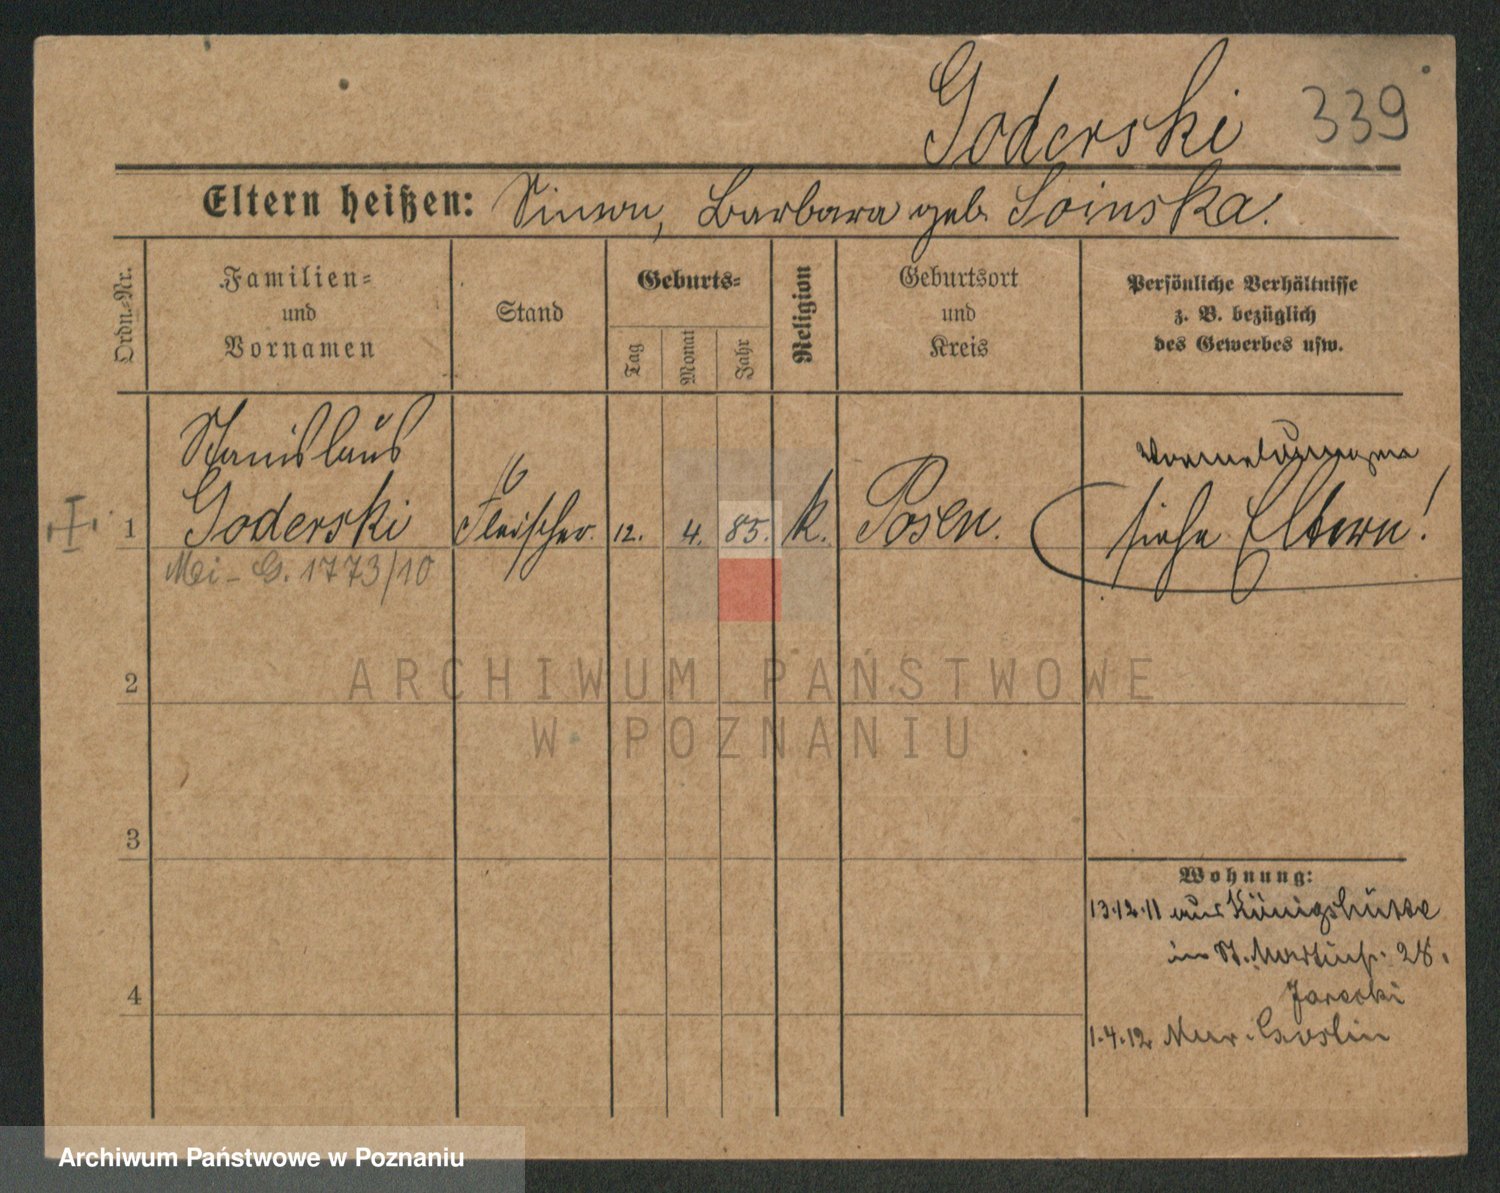 Goderski 339
Eltern heißen: Simon, Barbara geb. Soinska.
Ordn.-Nr.
Familien-
und
Vornamen
Stand
Geburts-
Tag
Monat
Jahr
Religion
Geburtsort
und
Kreis
Persönliche Verhältnisse
z. B. bezüglich
des Gewerbes usw.
Stanislaus
1 Goderski Fleischer. 12. 4. 85. k. Posen. siehe Eltern!
Mi - G. 1773/10
2
ARCHIWUM PAŃSTWOWE
W POZNANIU
3
Wohnung:
13.12.11 aus Königshütte
in St. Martinstr. 28.
Jarecki
4
1.4.12 Mur. Goslin
Archiwum Państwowe w Poznaniu